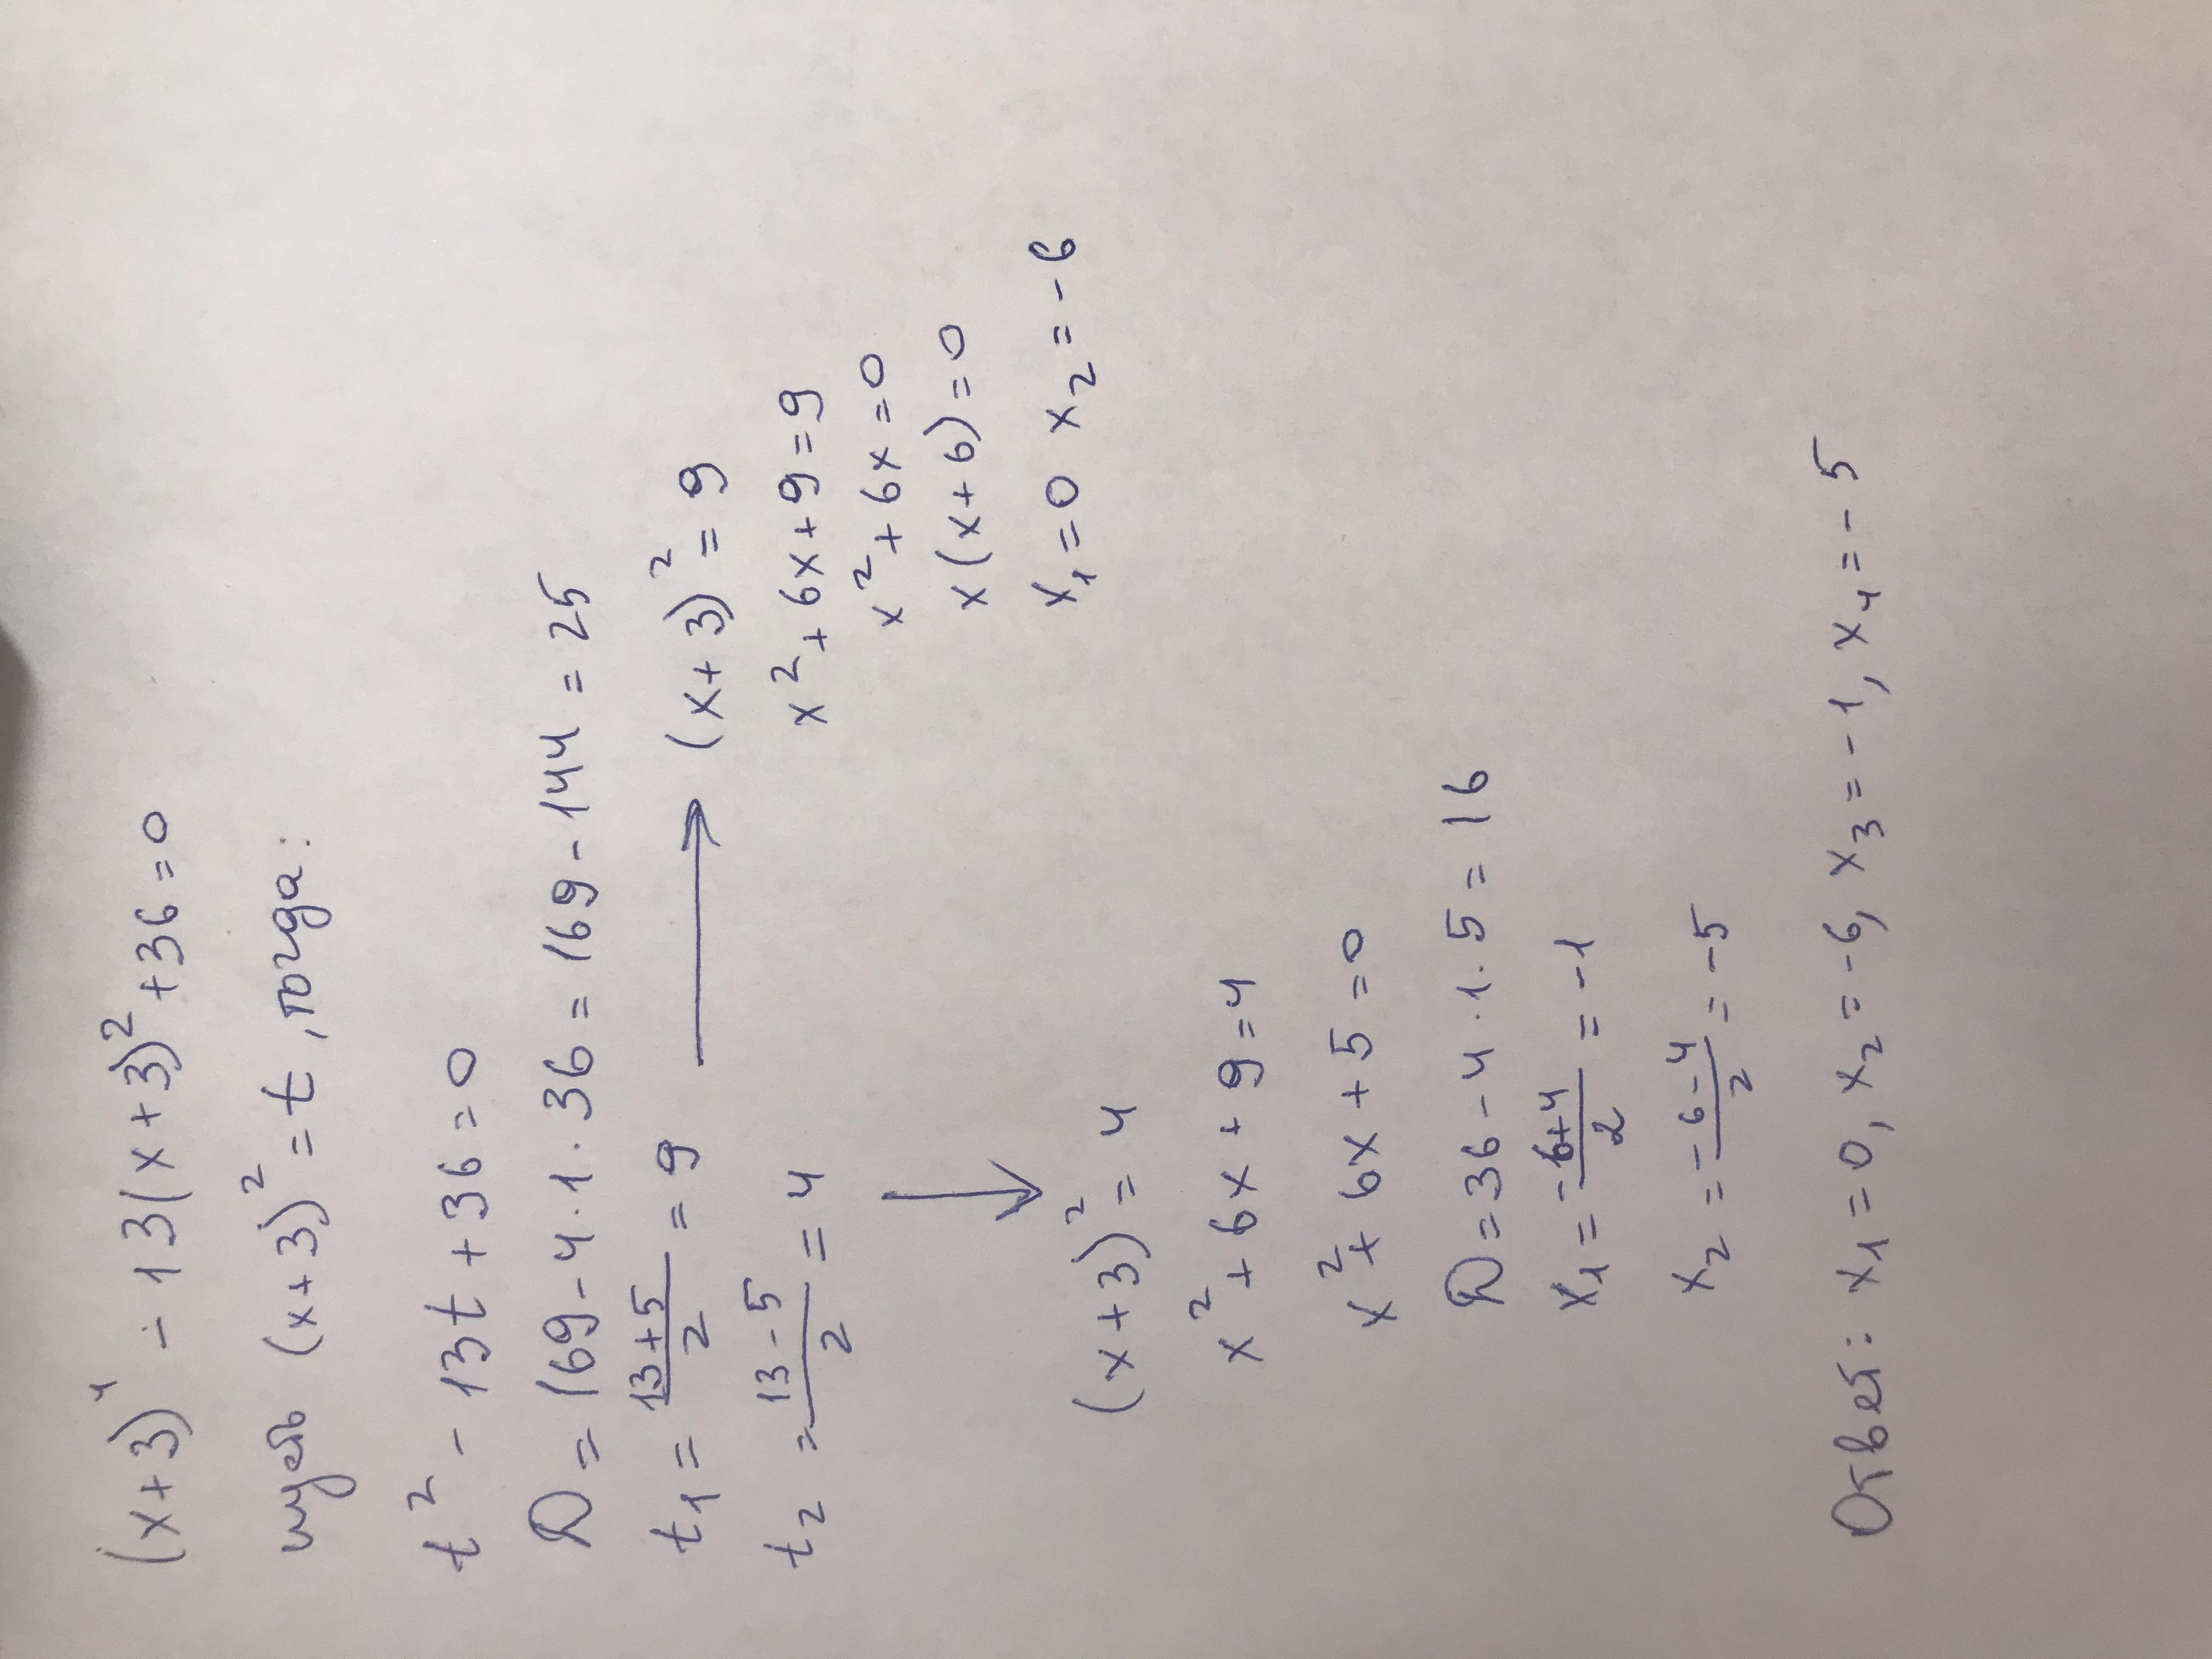 (x+3)⁴ - 13(x+3)² + 36 = 0
пусть (x+3)² = t, тогда:
t² - 13t + 36 = 0
D = 169 - 4 · 1 · 36 = 169 - 144 = 25
t₁ = (13+5)/2 = 9 → (x+3)² = 9
t₂ = (13-5)/2 = 4
x² + 6x + 9 = 9
x² + 6x = 0
x(x+6) = 0
x₁ = 0 x₂ = -6
↓
(x+3)² = 4
x² + 6x + 9 = 4
x² + 6x + 5 = 0
D = 36 - 4 · 1 · 5 = 16
x₁ = (-6+4)/2 = -1
x₂ = (-6-4)/2 = -5
Ответ: x₁ = 0, x₂ = -6, x₃ = -1, x₄ = -5